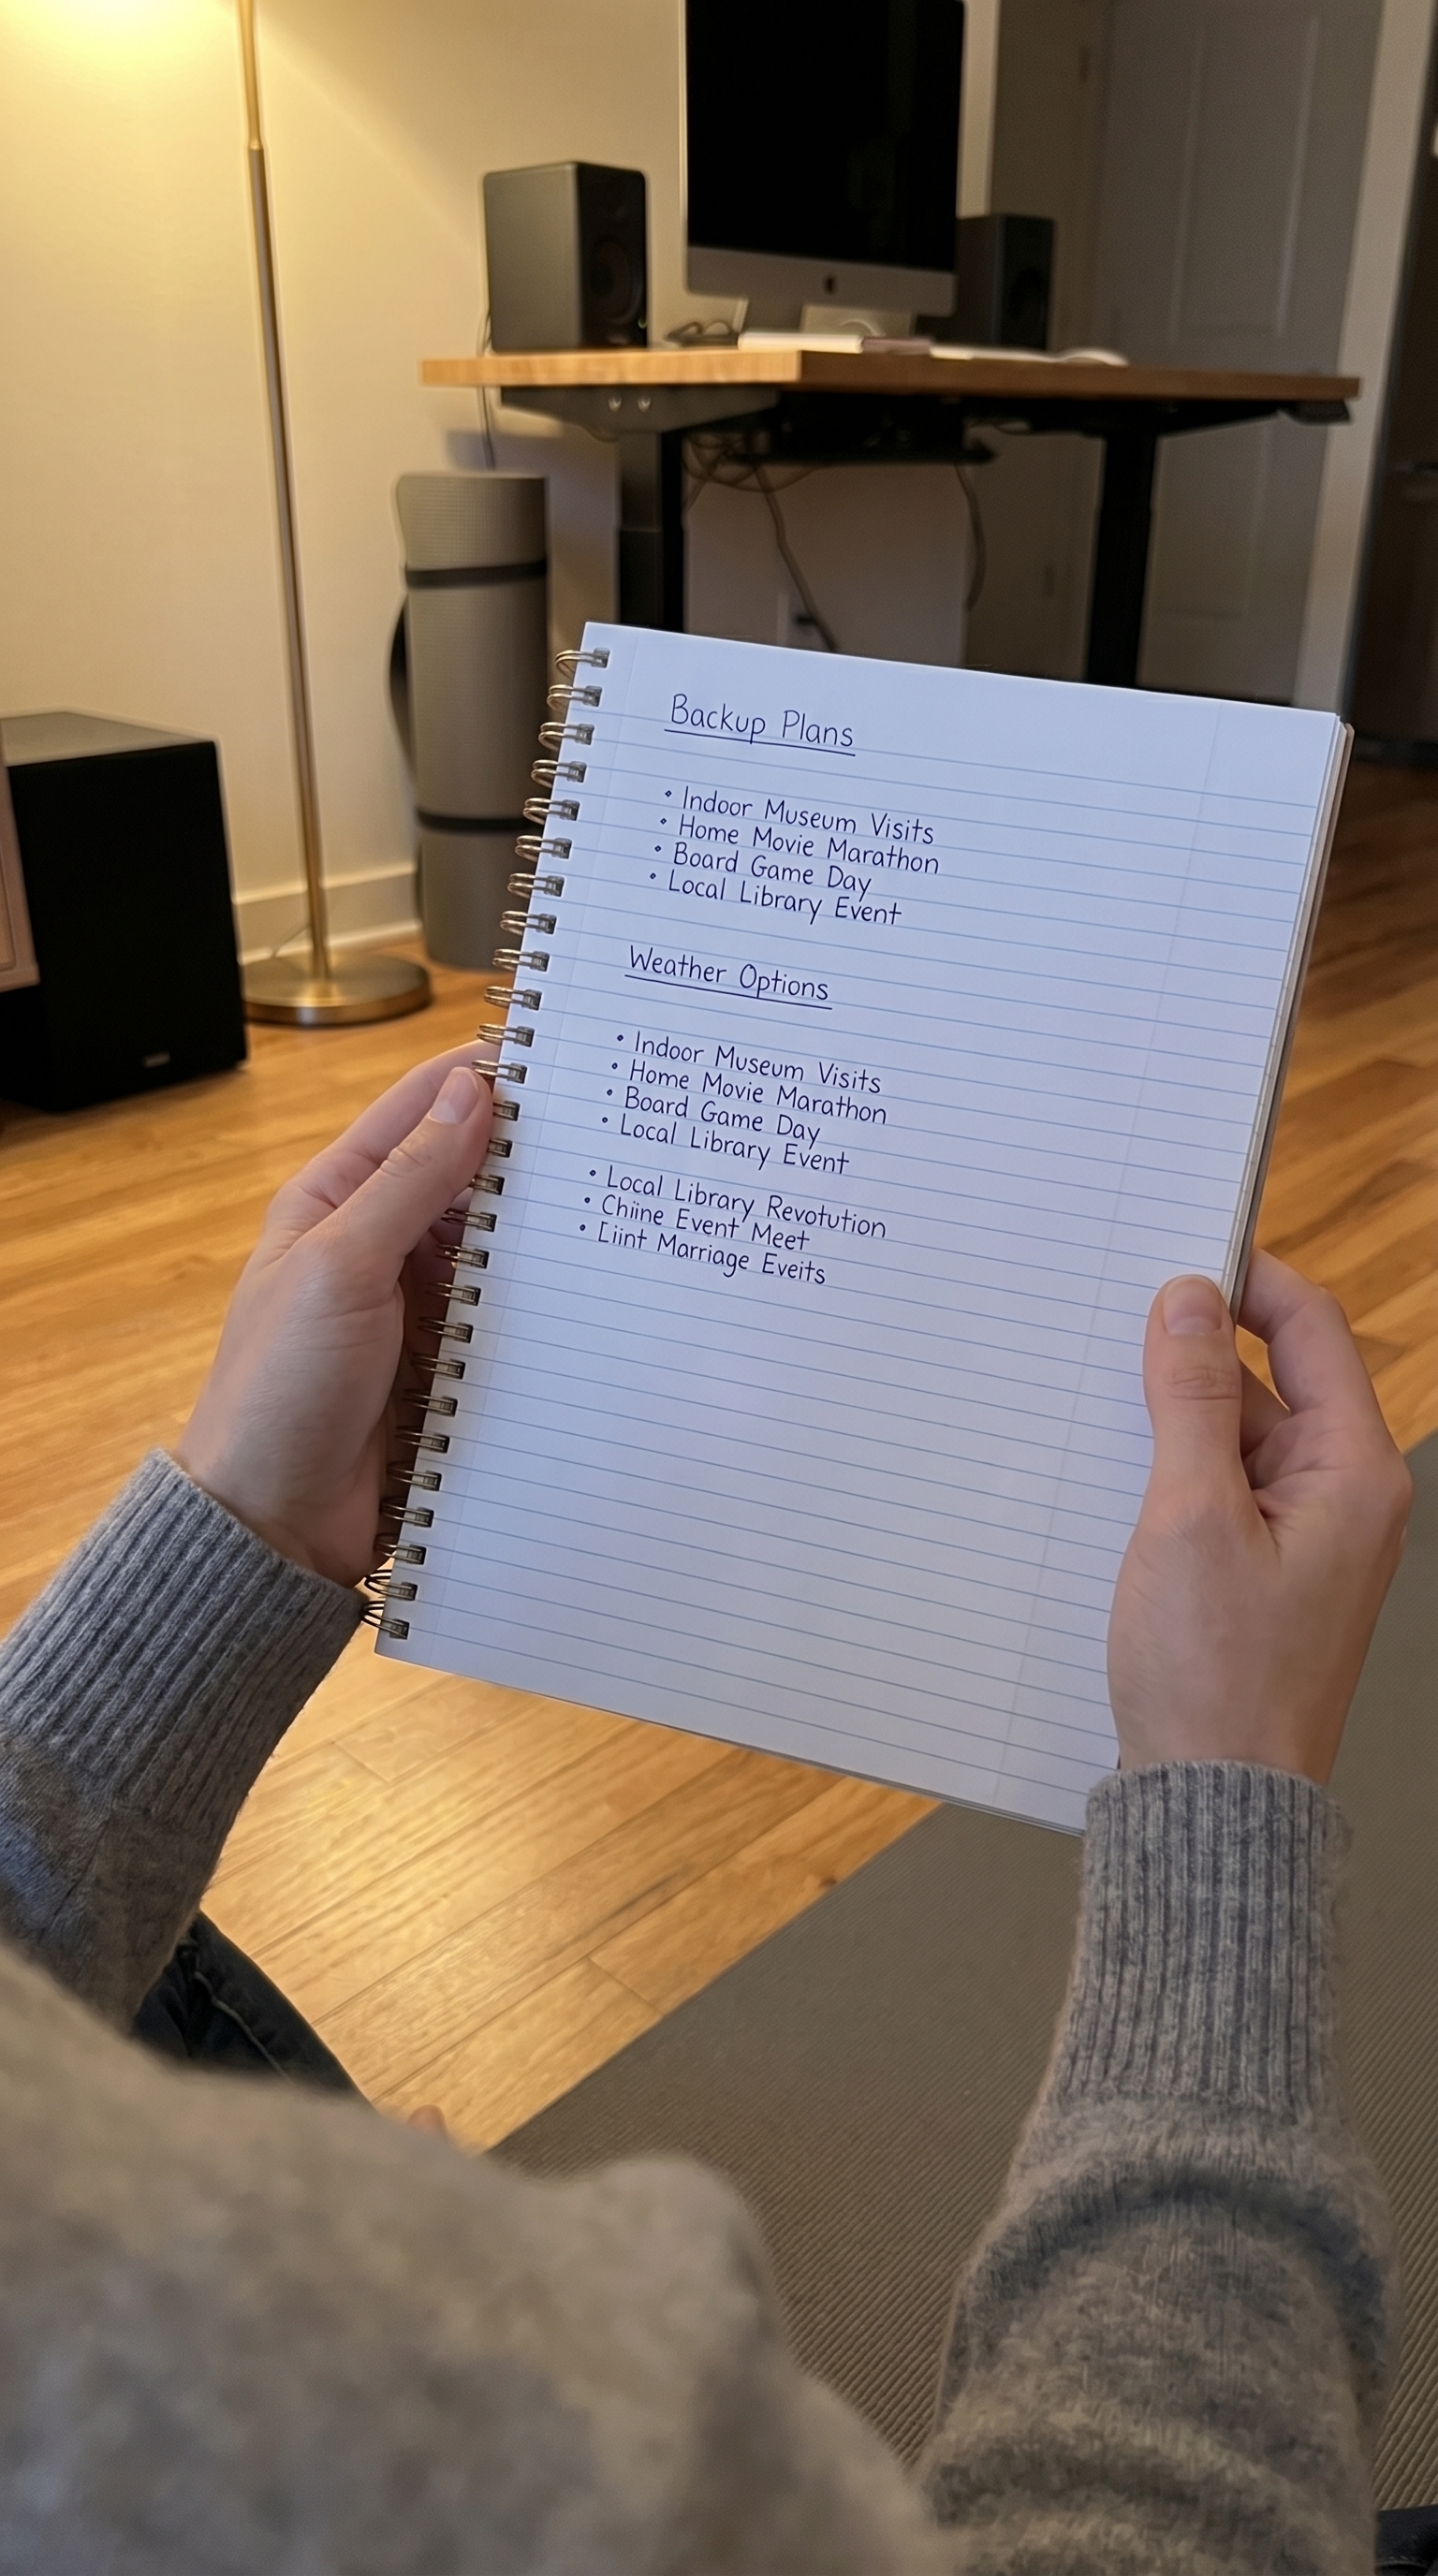 Backup Plans
• Indoor Museum Visits
• Home Movie Marathon
• Board Game Day
• Local Library Event
Weather Options
• Indoor Museum Visits
• Home Movie Marathon
• Board Game Day
• Local Library Event
• Local Library Revotution
• Chiine Event Meet
• Eiint Marriage Eveits